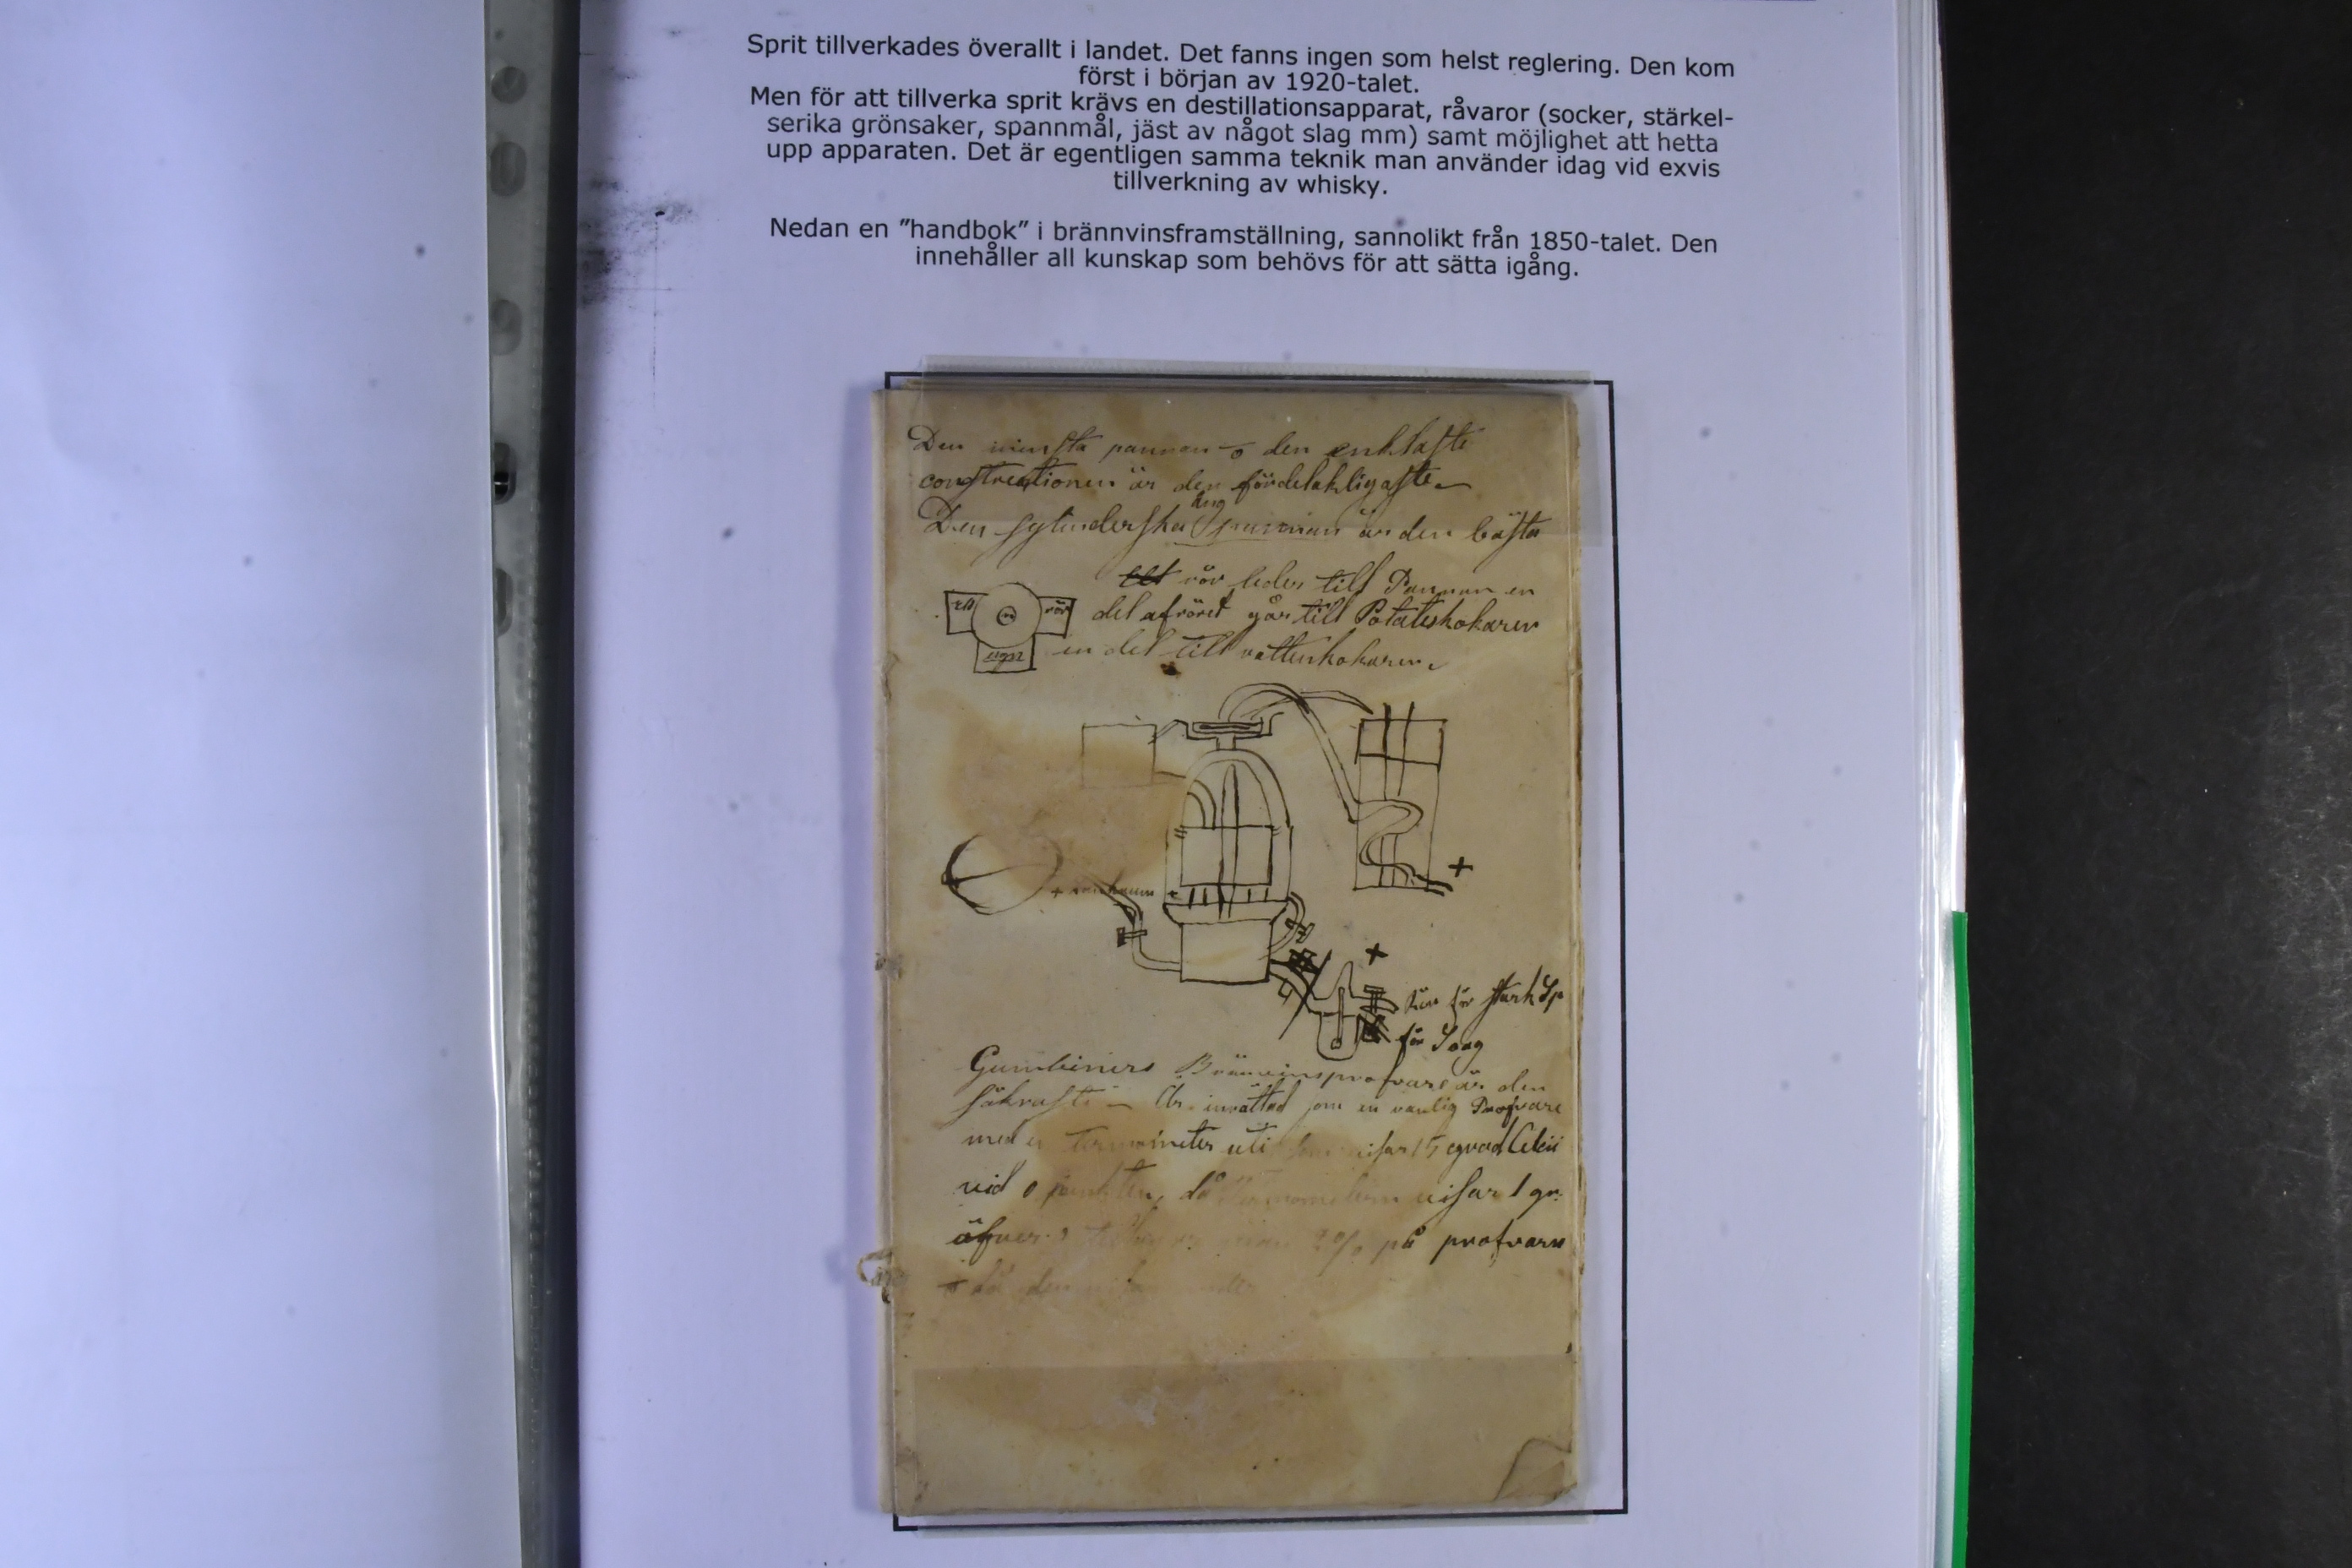 Sprit tillverkades överallt i landet. Det fanns ingen som helst reglering. Den kom
först i början av 1920-talet.
Men för att tillverka sprit krävs en destillationsapparat, råvaror (socker, stärkel-
serika grönsaker, spannmål, jäst av något slag mm) samt möjlighet att hetta
upp apparaten. Det är egentligen samma teknik man använder idag vid exvis
tillverkning av whisky.
Nedan en ”handbok” i brännvinsframställning, sannolikt från 1850-talet. Den
innehåller all kunskap som behövs för att sätta igång.
Den minsta pannan den enklaste
constructionen är den fördelakligaste
Den sylinderska pannan är den bästa
rör ledes till Pannan en
rör del af röret går till Potateskokaren
ugn en del till vattenkokaren
+
+
+
rör för stark Sp
för Svag
Gumbiners Bränvinsprofvare är den
säkraste Är inrättad som en vanlig Profvare
med en termometer uti visar 15 grad Celcii
vid 0 punkten, då visar 1 gr.
öfver på profvarn
då den